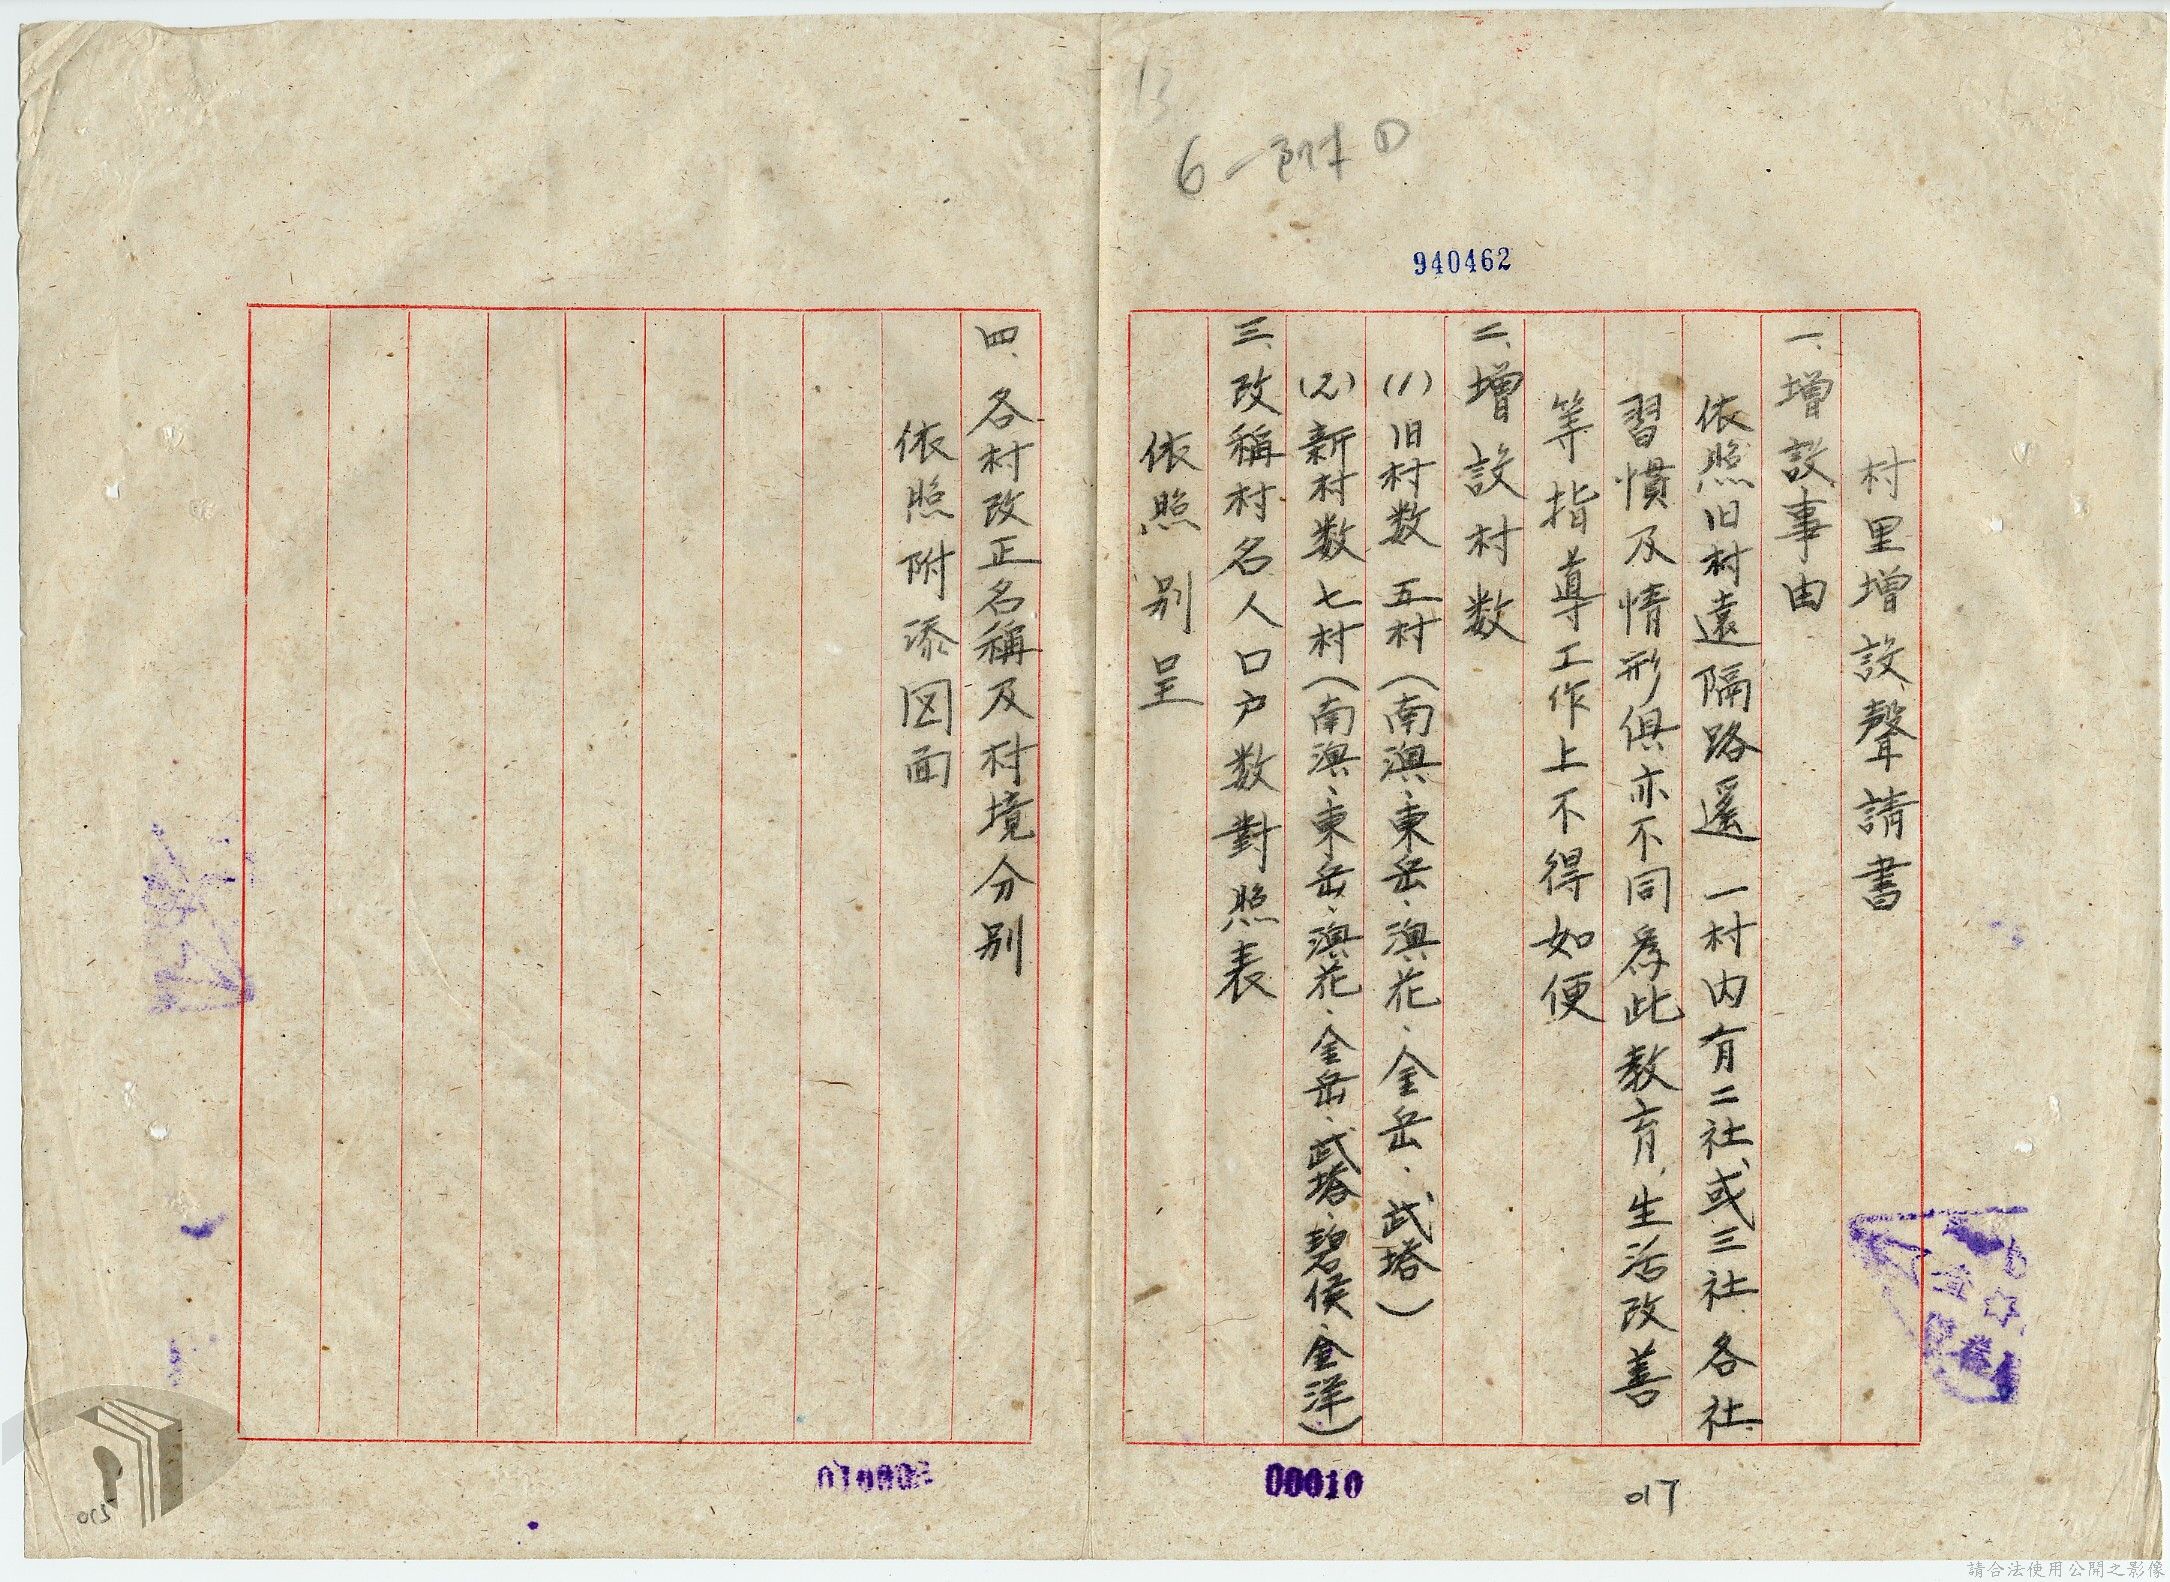 6-附①
940462
村里增設聲請書
一、增設事由
依照旧村遠隔路遙一村内有二社、或三社各社
習慣及情形俱亦不同為此教育、生活改善
等指導工作上不得如便
二、增設村数
(1)旧村数 五村(南澳、東岳、澳花、金岳、武塔)
(2)新村数七村(南澳、東岳、澳花、金岳、武塔、碧侯、金洋)
三、改稱村名人口户数對照表
依照别呈
四、各村改正名稱及村境分别
依照附添図面
017
00010
請合法使用公開之影像